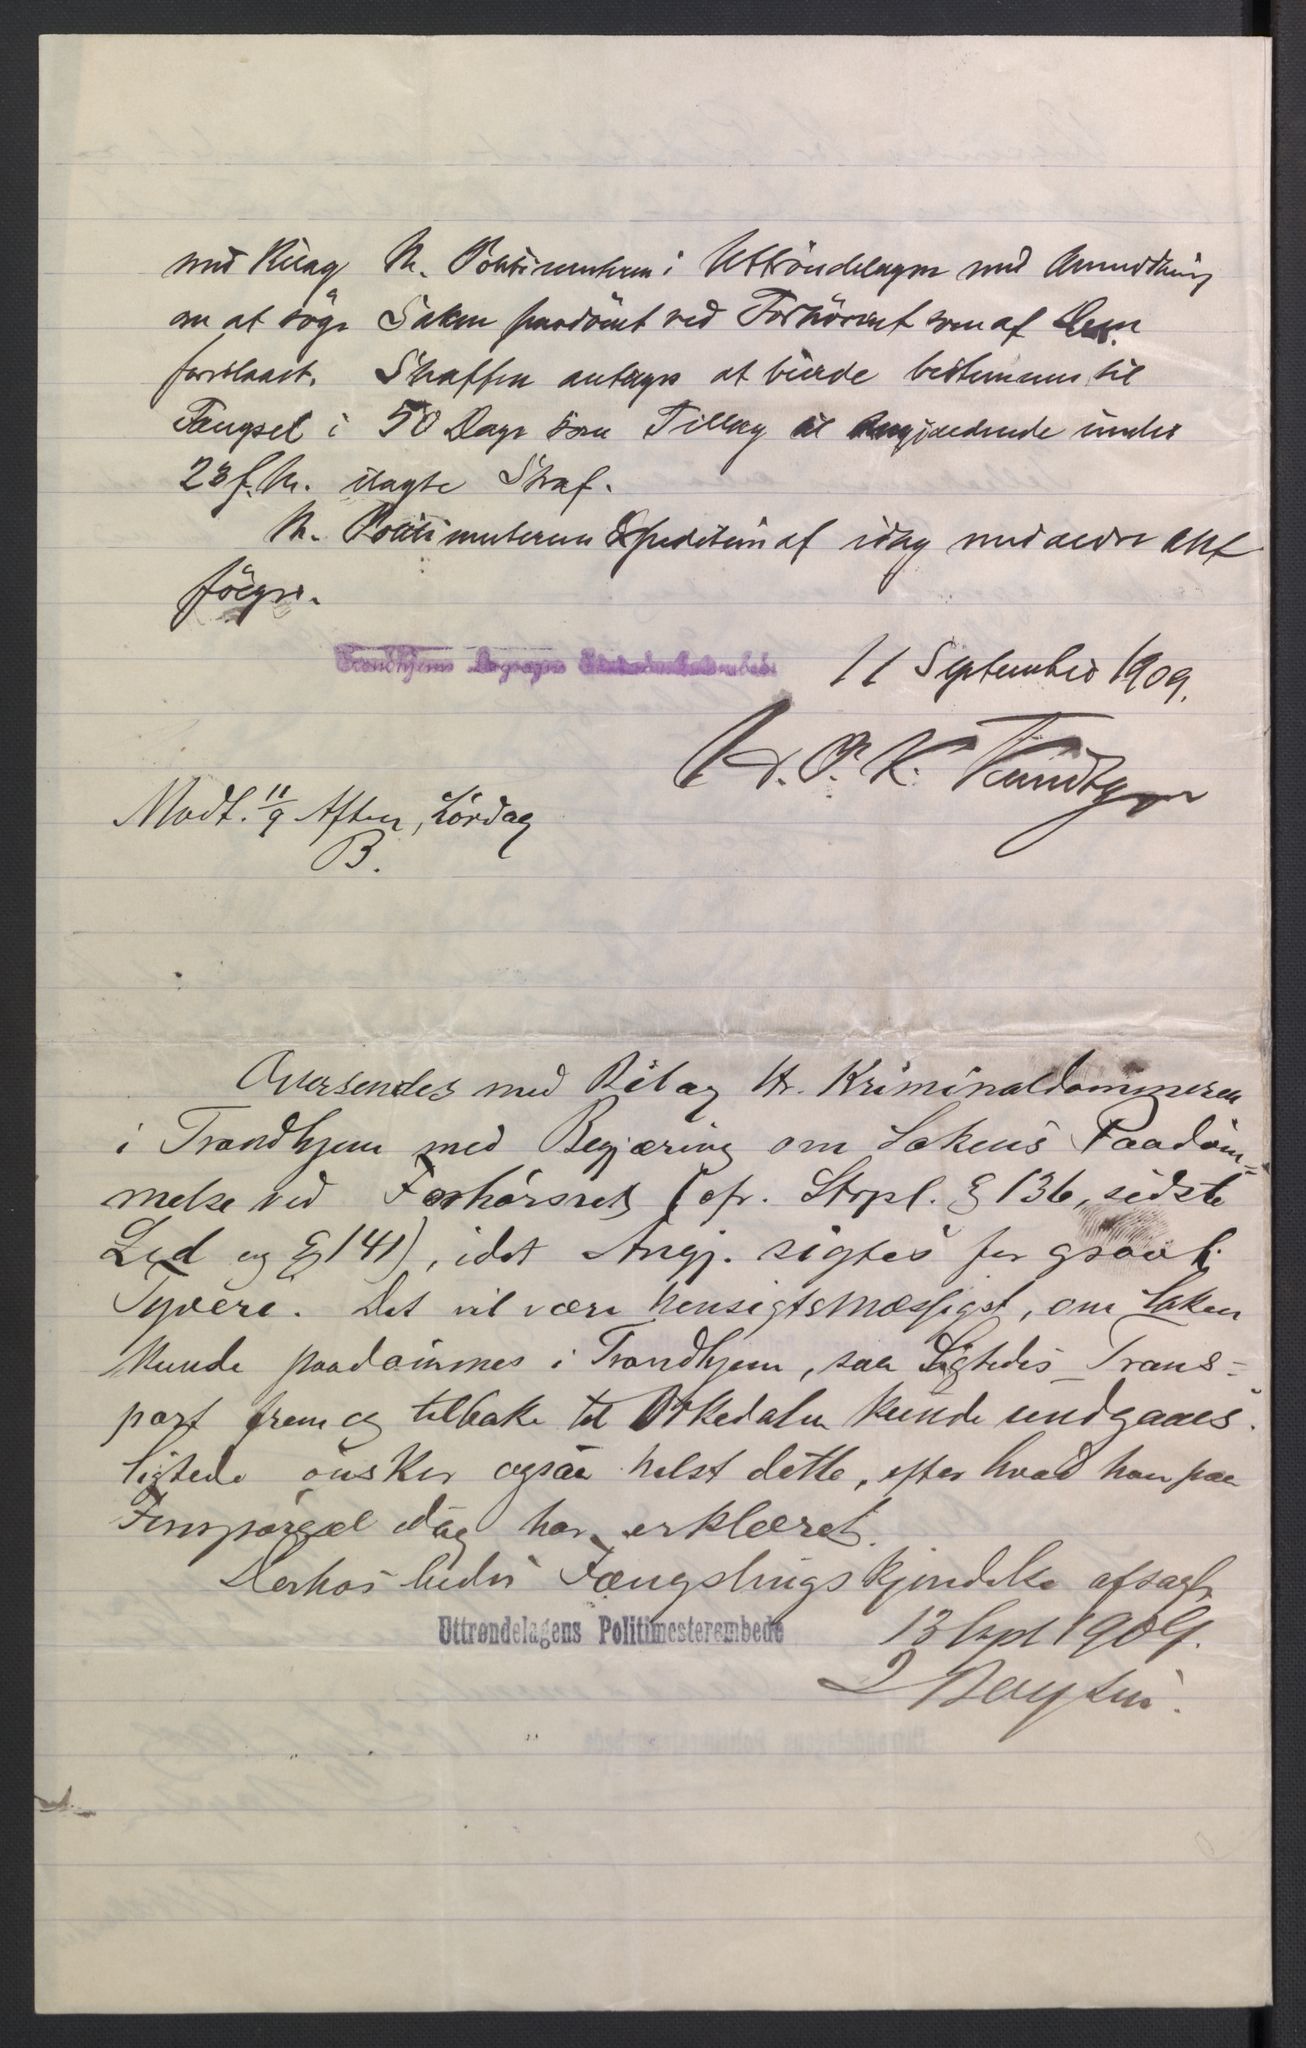 med Bilag Hr. Politimesteren i Uttröndelagen med Anmodning
om at söge Saken paadömt ved Forhörsret som af Dem
foreslaaet. Straffen antages at burde bestemmes til
Fængsel i 50 Dage som Tillæg til angjældende under
23 f. M. ilagte Straf.
Hr. Politimesterens Expedition af idag med ældre Akt
fölger.
Trondhjems Lagsogns Statsadvokatembede
11 September 1909.
Modt. 11/9 Aften, Lördag
B.
Oversendes med Bilag Hr. Kriminaldommeren
i Trondhjem med Begjæring om Sakens Paadöm=
melse ved Forhörsret (cfr. Strpl. § 136, sidste
Led og § 141), idet Angj. sigtes for grovt
Tyveri. Det vil være hensigtsmæssigst, om Saken
kunde paadömmes i Trondhjem, saa Sigtedes Trans=
port frem og tilbake til Orkedalen kunde undgaaes.
Sigtede önsker ogsaa helst dette, efter hvad han paa
Forespörgsel idag har erklæret.
Derhos bedes Fængslingskjendelse afsagt.
Uttrøndelagens Politimesterembede 13 Sept 1909.